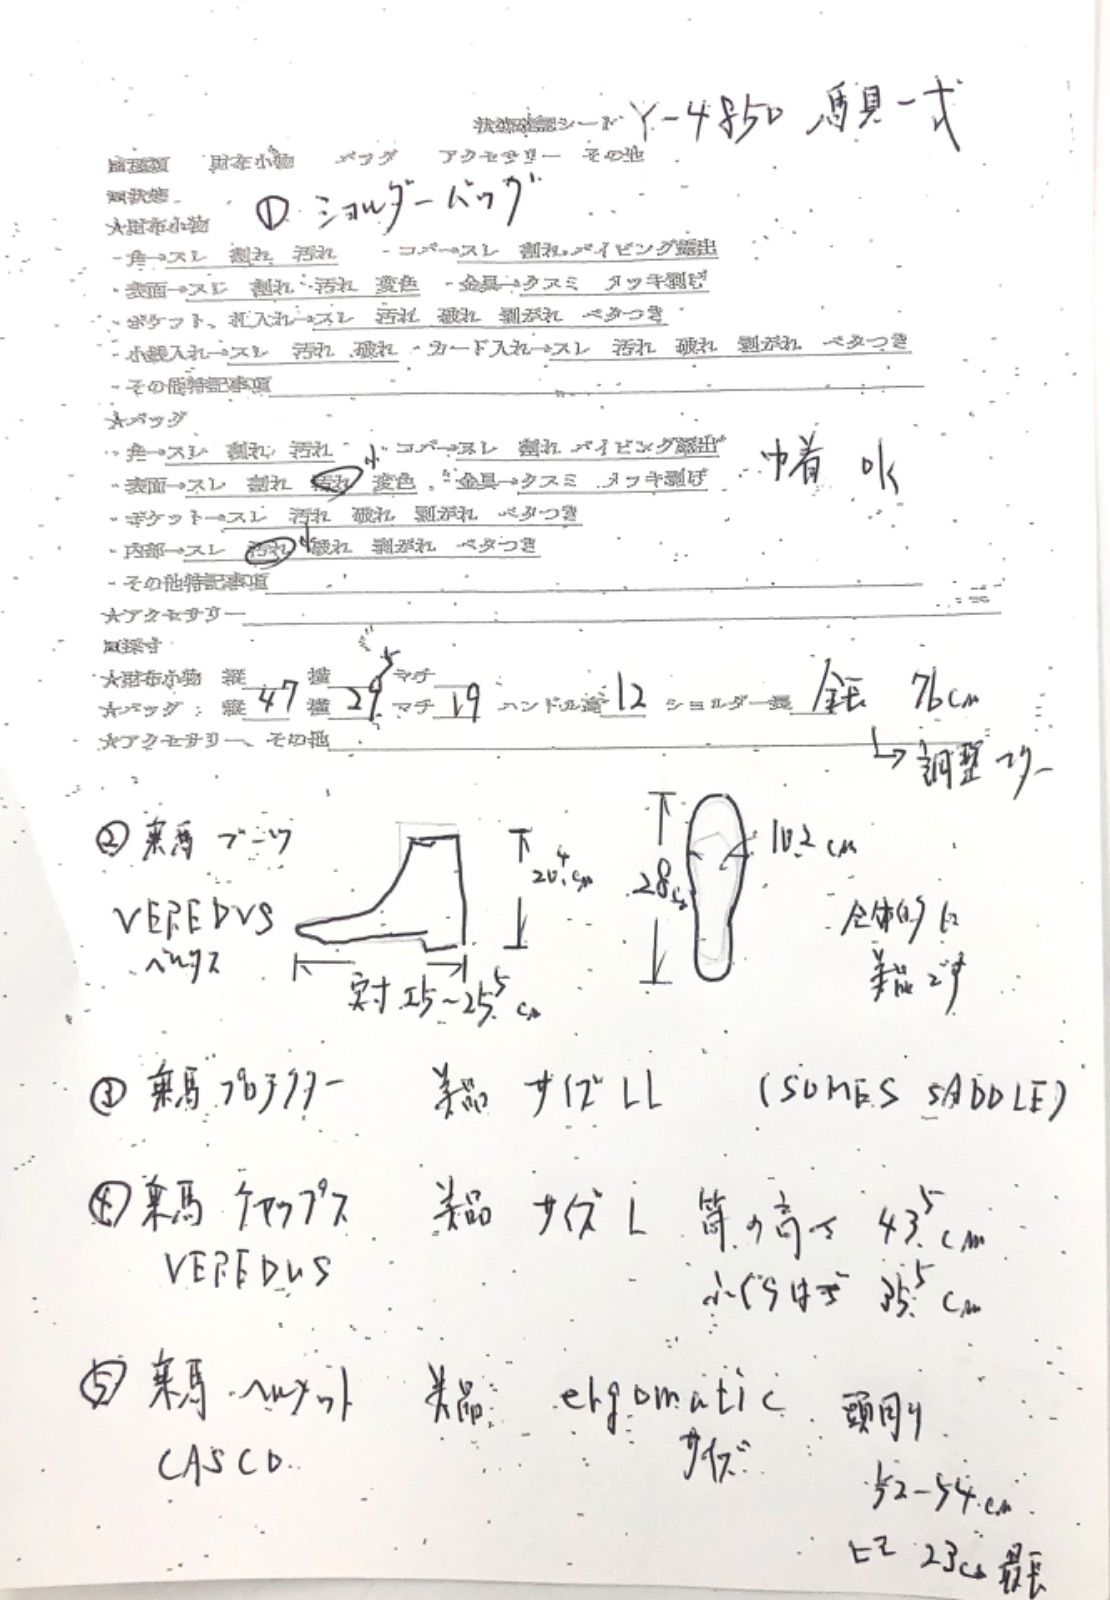 状態確認シート Y-4850 馬具一式
■種類 財布小物 バッグ アクセサリー その他
■状態
① ショルダーバッグ
★財布小物
・角→スレ 割れ 汚れ ・コバ→スレ 割れ パイピング露出
・表面→スレ 割れ 汚れ 変色 ・金具→クスミ メッキ剥げ
・ポケット、札入れ→スレ 汚れ 破れ 剥がれ ベタつき
・小銭入れ→スレ 汚れ 破れ ・カード入れ→スレ 汚れ 破れ 剥がれ ベタつき
・その他特記事項
★バッグ
・角→スレ 割れ 汚れ ・コバ→スレ 割れ パイピング露出
小
巾着 OK
・表面→スレ 割れ 汚れ 変色 ・金具→クスミ メッキ剥げ
・ポケット→スレ 汚れ 破れ 剥がれ ベタつき
・内部→スレ 汚れ 小 破れ 剥がれ ベタつき
・その他特記事項
★アクセサリー
■採寸
★財布小物 縦 横 マチ
★バッグ 縦 47 横 29.5 マチ 19 ハンドル高 12 ショルダー長 全長 76cm
★アクセサリー、その他
↳ 調整
② 乗馬 ブーツ
20.4cm
28cm
10.2cm
VEREDUS
全体的に
美品です
実寸 25~25.5cm
③ 乗馬プロテクター 美品 サイズLL (SOMES SADDLE)
④ 乗馬 チャップス 美品 サイズ L 筒の高さ 43.5cm
VEREDUS
ふくらはぎ 35.5cm
⑤ 乗馬 ヘルメット 美品 ergomatic 頭周り
CASCO サイズ
52-54cm
23cm 最長